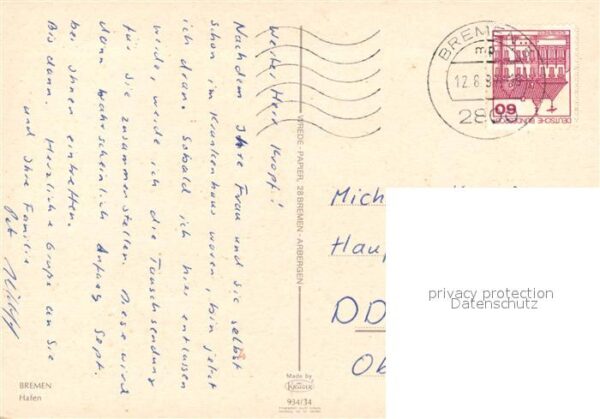 Werter Herr Kropf!
Nachdem Ihre Frau und Sie selbst
schon im Krankenhaus waren, bin jetzt
ich dran. Sobald ich hier entlassen
werde, werde ich die Tauschsendung
für Sie zusammenstellen. Diese wird
dann wahrscheinlich Anfang Sept.
bei Ihnen eintreffen.
Bis dann. Herzliche Grüße an Sie
und Ihre Familie
BREMEN
mp
12.8.
2800
60
DEUTSCHE BUNDESPOST
WREDE-PAPIER, 28 BREMEN-ARBERGEN
Mich
Haup
DD
Ob
privacy protection
Datenschutz
Made by
KRÜGER
994/34
BREMEN
Hafen